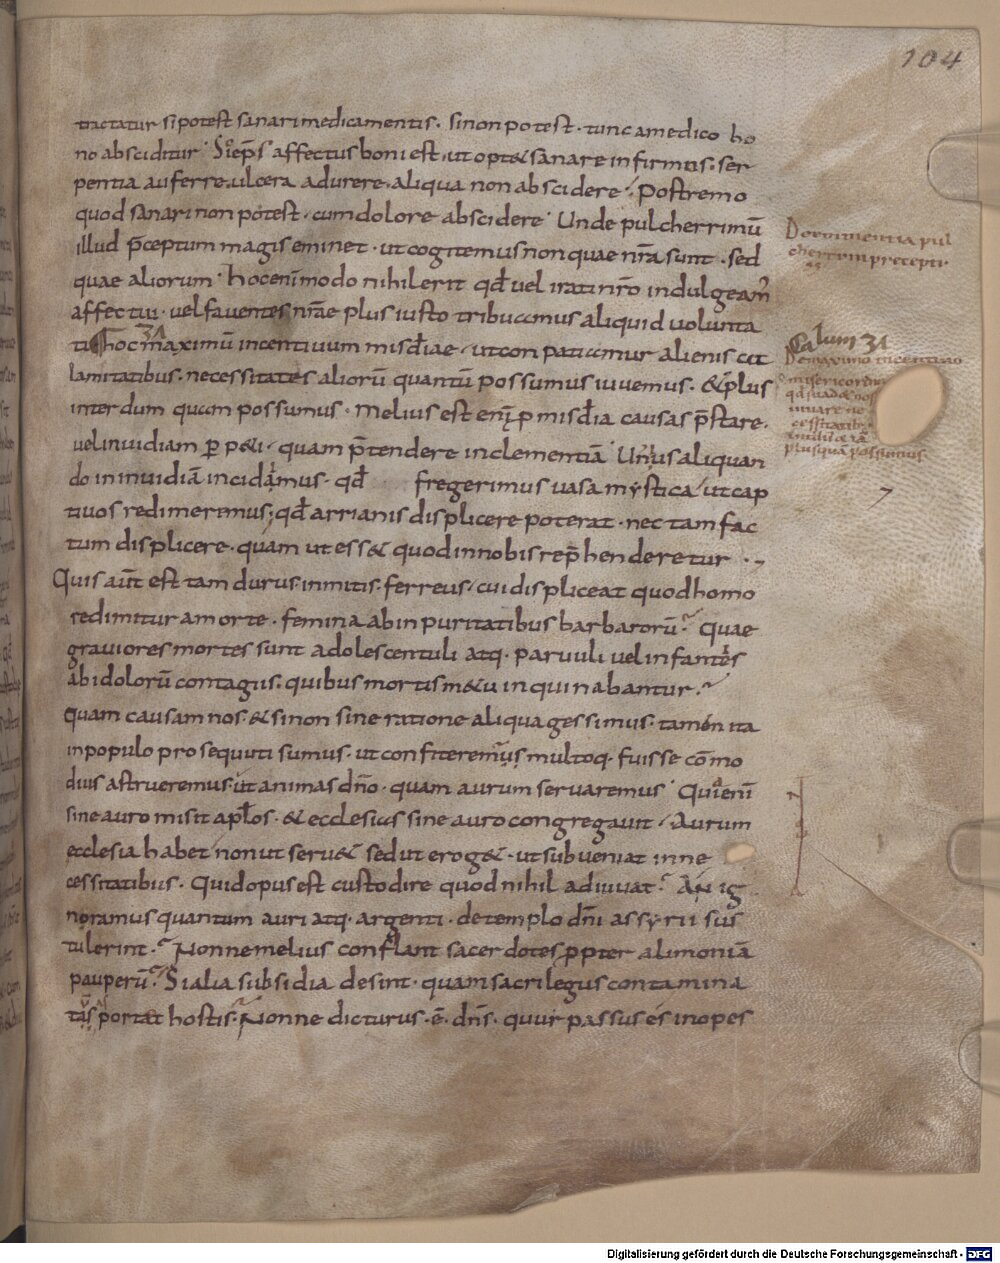 104
tractatur si potest sanari medicamentis. si non potest. tunc a medico bo
no absciditur. Sic ep̄s affectus boni est. ut optet sanare infirmus. ser
pentia auferre. ulcera adurere. aliqua non abscidere. Postremo
quod sanari non potest. cum dolore abscidere. Unde pulcherrimū
illud p̄ceptum magis eminet. ut cogitemus non quae nr̄a sunt. sed
quae aliorum. hoc enī modo nihil erit qđ vel irati nr̄o indulgeam̄
affectui. vel faventes nr̄ae plus iusto tribuamus aliquid volunta
ti. hoc maximū incentivum misđiae. ut conpatiamur alienis ca
31
lamitatibus. necessitates aliorū quantū possumus iuvemus. & plus
interdum quam possumus. Melius est enī p misđia causas p̄stare.
vel invidiam ꝑpeti. quam p̄tendere inclementiā. Unus aliquan
do in invidiā incidamus. qđ fregerimus vasa mystica. ut cap
tivos redimeremus; qđ arrianis displicere poterat. nec tam fac
tum displicere. quam ut ess& quod in nobis rep̄henderetur.
Quis aūt est tam durus. inmitis. ferreus. cui displiceat quod homo
redimitur a morte. femina ab inpuritatibus barbarorū? Quae
graviores mortes sunt adolescentuli atq. parvuli vel infantes
ab idolorū contagiis. quibus mortis m&u inquinabantur?
Quam causam nos & si non sine ratione aliqua gessimus. tamen ita
in populo prosequuti sumus. ut confiteremus multoq. fuisse cōmo
dius astrueremus. ut animas dn̄o. quam aurum servaremus. Qui enī
sine auro misit apl̄os. & ecclesias sine auro congregavit. Aurum
ecclesia habet non ut serv& sed ut erog&. ut subveniat in ne
cessitatibus. Quid opus est custodire quod nihil adiuvat? An ig
noramus quantum auri atq. argenti. de templo dn̄i assyrii sus
tulerint? Nonne melius conflant sacerdotes ꝓpter alimoniā
pauperū? Si alia subsidia desint. quam sacrilegus contamina
ta asportat hostis. Nonne dicturus. ē. dn̄s. quur passus es inopes
De eminentia pul
cherrimi precepti
Ca lum 31
De maximo incentivo
misericordie
qđ suad& nos
iuvare ne
cessitatib;
plusquā possumus.
Digitalisierung gefördert durch die Deutsche Forschungsgemeinschaft - DFG